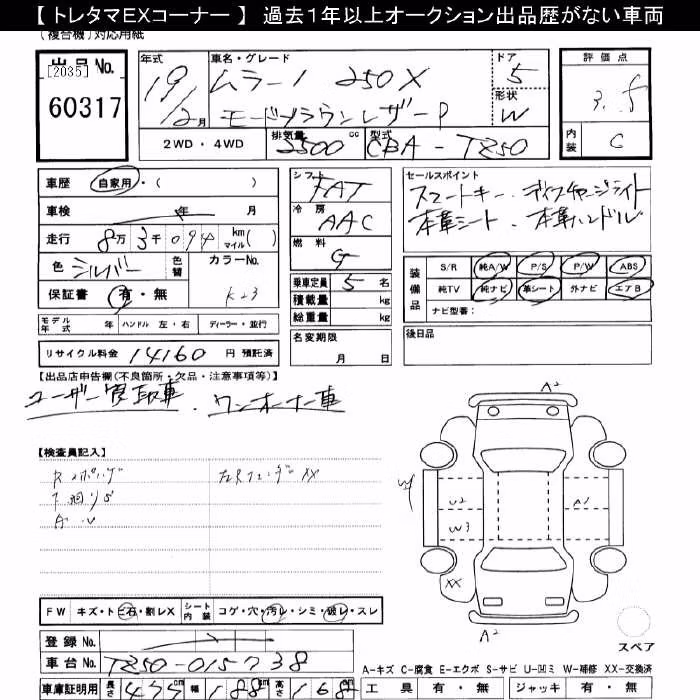 【 トレタマEXコーナー 】 過去1年以上オークション出品歴がない車両
(複合機)対応用紙
出品 No. [2035] 60317
年式 19/12月
車名・グレード ムラーノ 250X
モードブラウンレザー
ドア 5
形状 W
2WD・4WD 排気量 2500 cc 型式 CBA-TZ50
評価点 3.5
内装 C
車歴 自家用・( )
車検 年 月
走行 8万 3千 094 km マイル( )
色 シルバー 色替 カラーNo. K23
保証書 有・無
モデル年式 年 ハンドル 左・右 ディーラー・並行
リサイクル料金 14160 円 預託済
シフト FAT
冷房 AAC
燃料 G
乗車定員 5 名
積載量 kg
総重量 kg
名変期限 月 日
セールスポイント
スマートキー・ディスチャージライト
本革シート・本革ハンドル
装備品 S/R 純A/W P/S P/W ABS
純TV 純ナビ 革シート 外ナビ エアB
ナビ型番:
後日品
【出品店申告欄(不良箇所・欠品・注意事項等)】
ユーザー買取車. ワンオーナー車
【検査員記入】
左Rフェンダ XX
A2
U2
W3
A2
XX
A2
スペア
FW キズ・トビ石・割レX シート内装 コゲ・穴・汚レ・シミ・破レ・スレ
登録 No.
車台 No. TZ50-015738
A-キズ C-腐食 E-エクボ S-サビ U-凹ミ W-補修 XX-交換済
車庫証明用 長さ 477 cm 幅 188 cm 高さ 168 cm
工具 有・無 ジャッキ 有・無